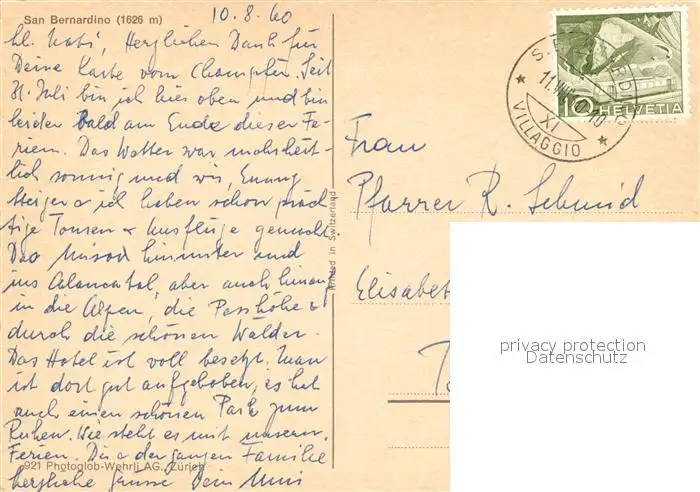 San Bernardino (1626 m)
10.8.60
Herzlichen Dank für
Deine Karte vom Champfèr. Seit
31. Juli bin ich hier oben und bin
leider bald am Ende dieser Fe-
rien. Das Wetter war mehrheit-
lich sonnig und wir,
Steiger & ich haben schon präch-
tige Touren & Ausflüge gemacht.
Das Misox hinunter und
ins Calancatal, aber auch hinauf
in die Alpen, die Passhöhe &
durch die schönen Wälder.
Das Hotel ist voll besetzt, man
ist dort gut aufgehoben, es hat
auch einen schönen Park zum
Ruhen. Wie steht es mit unseren
Ferien. Dir & der ganzen Familie
herzliche Grüsse Dein
921 Photoglob-Wehrli AG., Zürich
Printed in Switzerland
10 HELVETIA
XI
VILLAGGIO
Frau
Pfarrer R. Schmid
Elisabet
privacy protection
Datenschutz